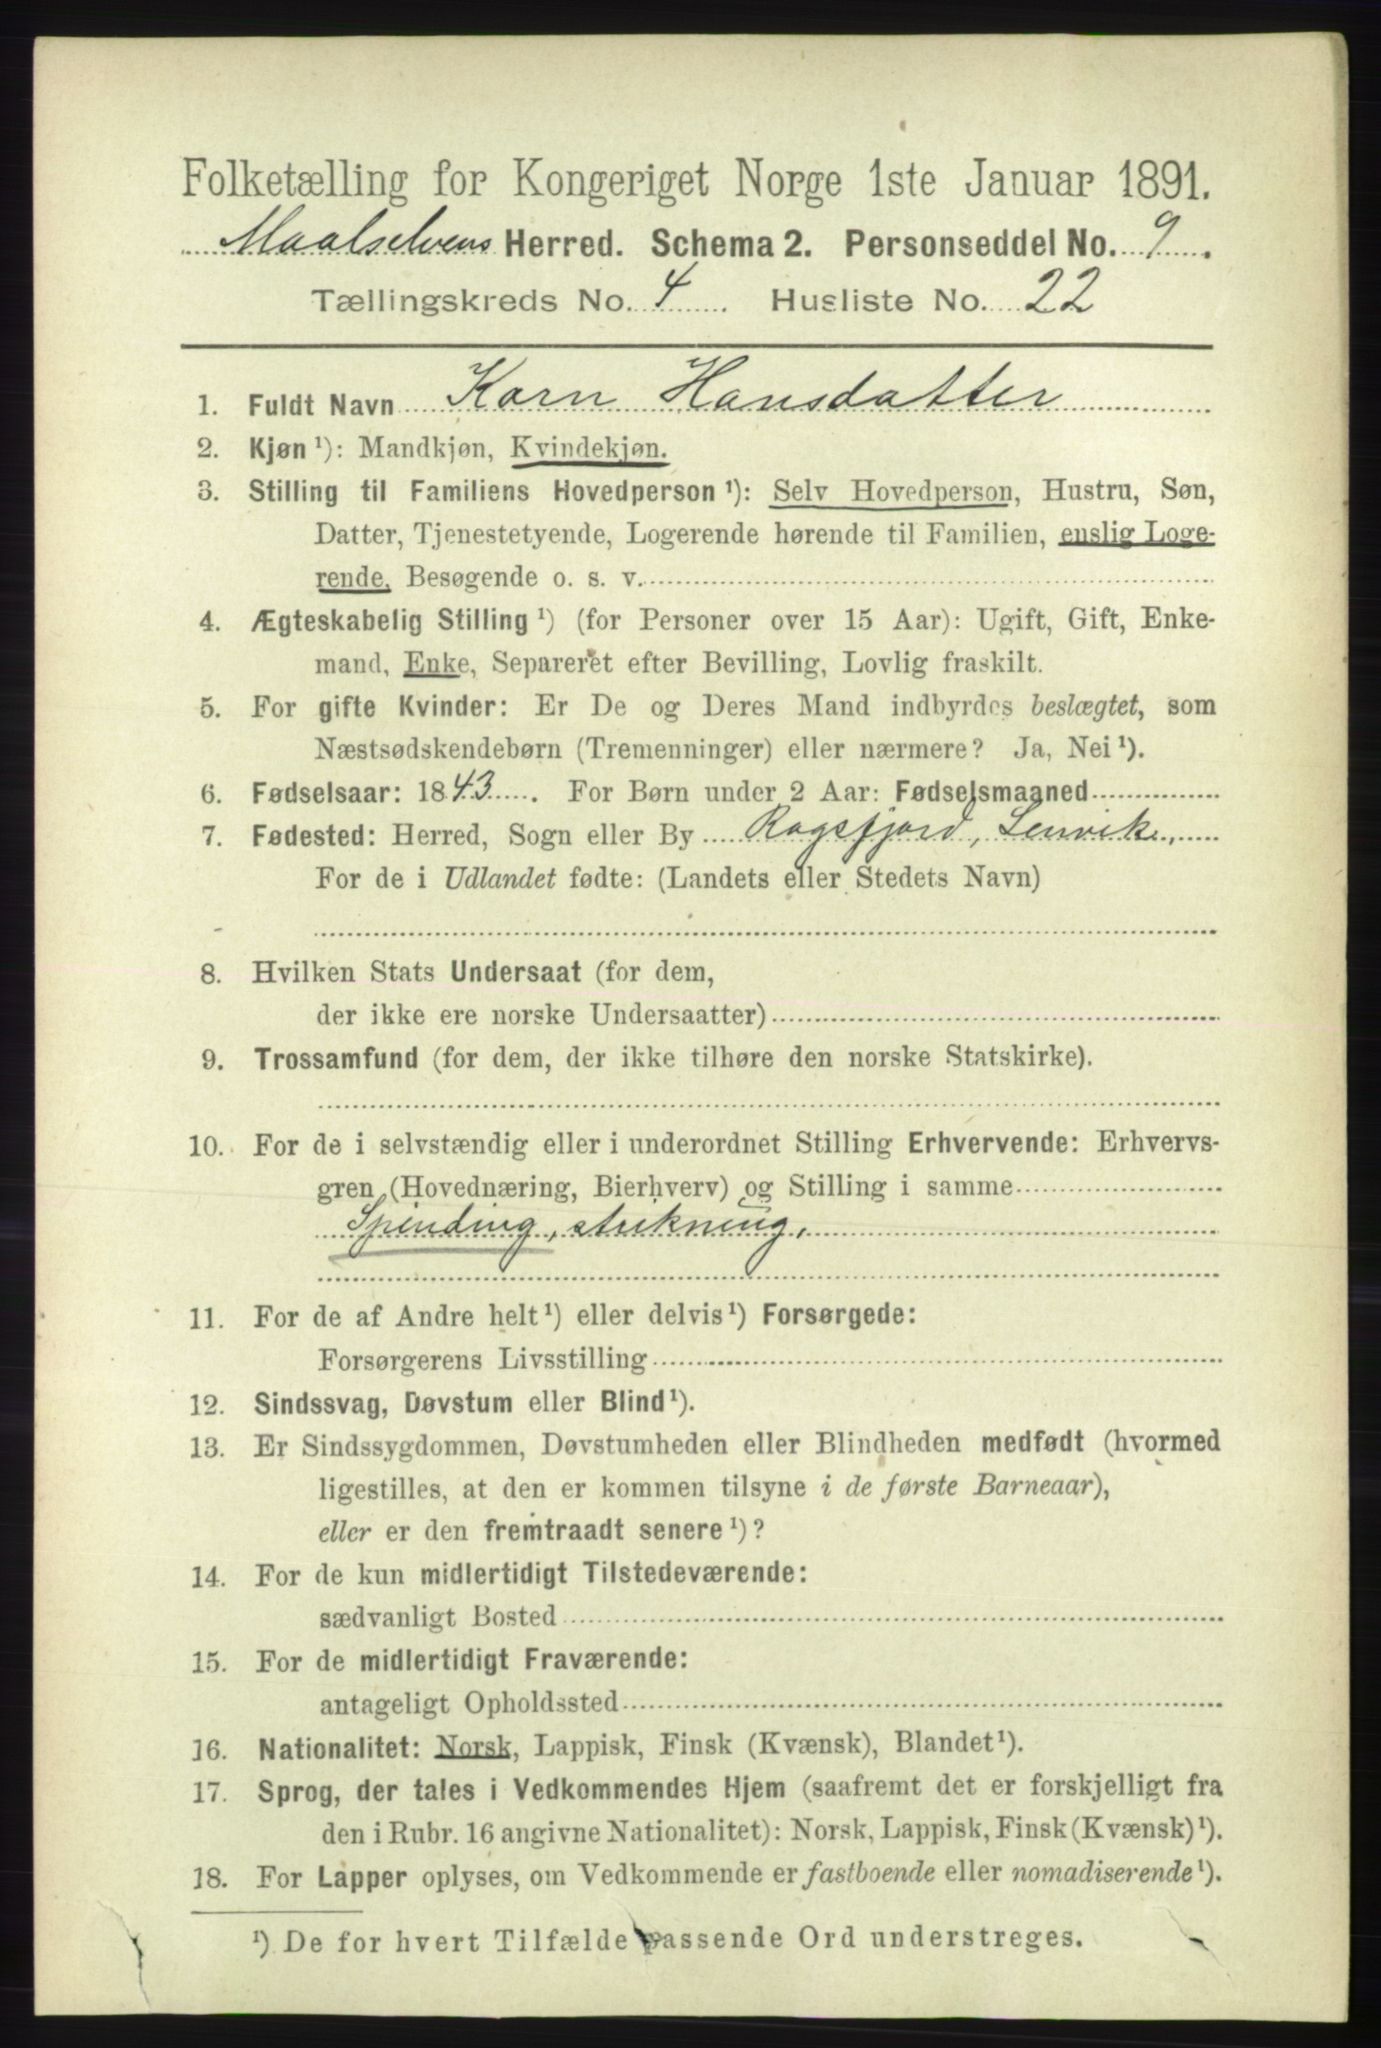 Folketælling for Kongeriget Norge 1ste Januar 1891.
Maalselvens Herred. Schema 2. Personseddel No. 9.
Tællingskreds No. 4. Husliste No. 22
1. Fuldt Navn Karn Hansdatter
2. Kjøn ¹): Mandkjøn, Kvindekjøn.
3. Stilling til Familiens Hovedperson ¹): Selv Hovedperson, Hustru, Søn,
Datter, Tjenestetyende, Logerende hørende til Familien, enslig Loge-
rende, Besøgende o. s. v.
4. Ægteskabelig Stilling ¹) (for Personer over 15 Aar): Ugift, Gift, Enke-
mand, Enke, Separeret efter Bevilling, Lovlig fraskilt.
5. For gifte Kvinder: Er De og Deres Mand indbyrdes beslægtet, som
Næstsødskendebørn (Tremenninger) eller nærmere? Ja, Nei ¹).
6. Fødselsaar: 1843. For Børn under 2 Aar: Fødselsmaaned
7. Fødested: Herred, Sogn eller By Rogsfjord, Lenvik,
For de i Udlandet fødte: (Landets eller Stedets Navn)
8. Hvilken Stats Undersaat (for dem,
der ikke ere norske Undersaatter)
9. Trossamfund (for dem, der ikke tilhøre den norske Statskirke).
10. For de i selvstændig eller i underordnet Stilling Erhvervende: Erhvervs-
gren (Hovednæring, Bierhverv) og Stilling i samme
Spinding, strikning,
11. For de af Andre helt ¹) eller delvis ¹) Forsørgede:
Forsørgerens Livsstilling
12. Sindssvag, Døvstum eller Blind ¹).
13. Er Sindssygdommen, Døvstumheden eller Blindheden medfødt (hvormed
ligestilles, at den er kommen tilsyne i de første Barneaar),
eller er den fremtraadt senere ¹)?
14. For de kun midlertidigt Tilstedeværende:
sædvanligt Bosted
15. For de midlertidigt Fraværende:
antageligt Opholdssted
16. Nationalitet: Norsk, Lappisk, Finsk (Kvænsk), Blandet ¹).
17. Sprog, der tales i Vedkommendes Hjem (saafremt det er forskjelligt fra
den i Rubr. 16 angivne Nationalitet): Norsk, Lappisk, Finsk (Kvænsk) ¹).
18. For Lapper oplyses, om Vedkommende er fastboende eller nomadiserende ¹).
¹) De for hvert Tilfælde passende Ord understreges.